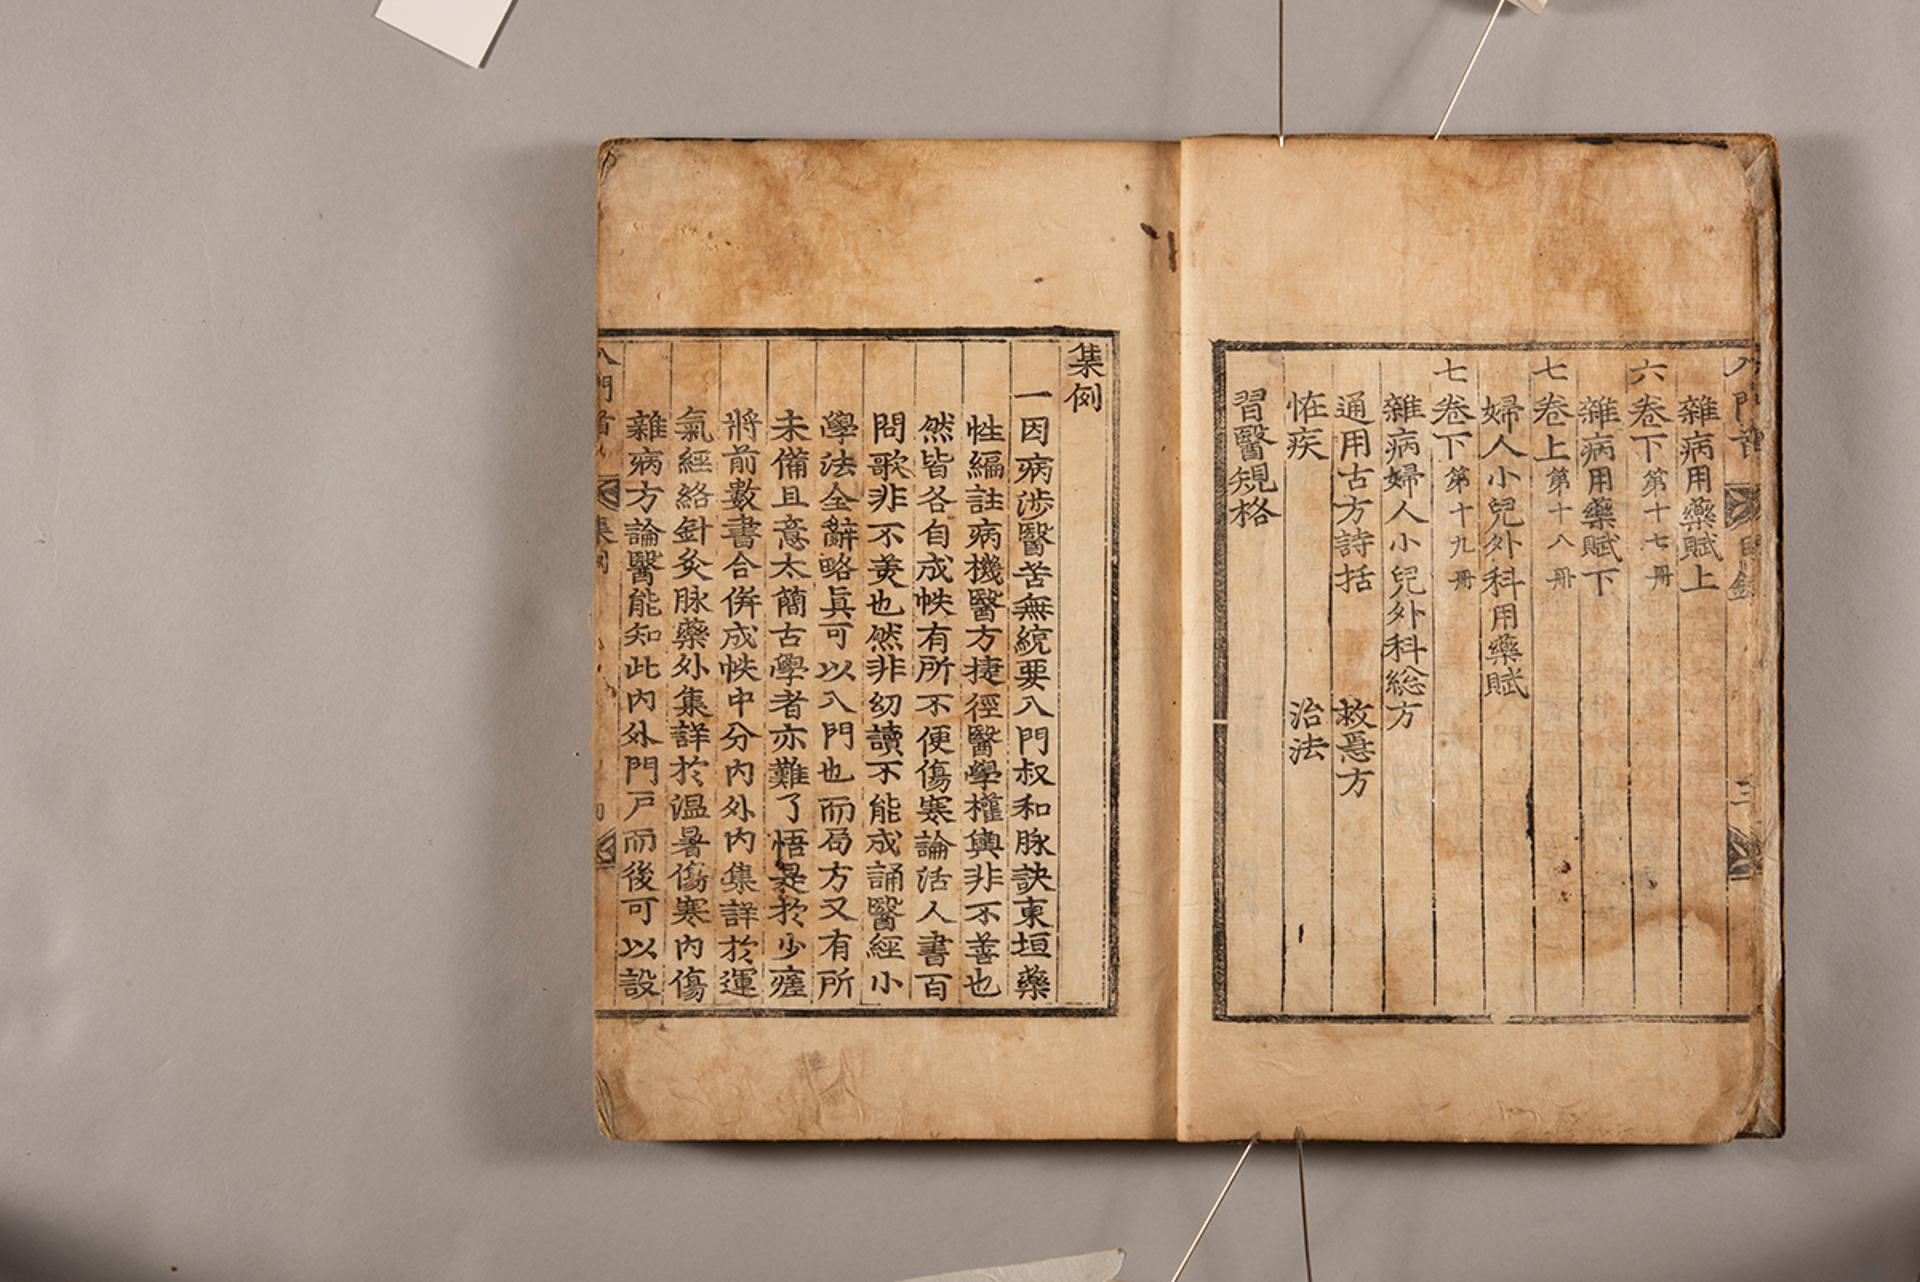 雜病用藥賦上
六卷下 第十七册
雜病用藥賦下
七卷上 第十八册
婦人小兒外科用藥賦
七卷下 第十九册
雜病婦人小兒外科総方
通用古方詩括 救急方
怪疾 治法
習醫規格
集例
一因病涉醫苦無統要入門叔和脉訣東垣藥
性編註病機醫方捷徑醫學權輿非不善也
然皆各自成帙有所不便傷寒論活人書百
問歌非不美也然非幼讀不能成誦醫經小
學法全辭略眞可以入門也而局方又有所
未備且意太簡古學者亦難了悟是於少瘥
將前數書合倂成帙中分內外內集詳於運
氣經絡針灸脉藥外集詳於溫暑傷寒內傷
雜病方論醫能知此內外門戸而後可以設